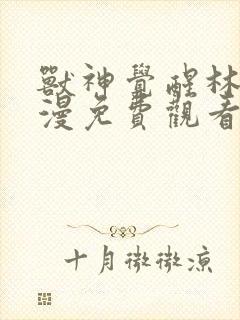 獸神覺醒林
漫免費觀看
十月微微涼